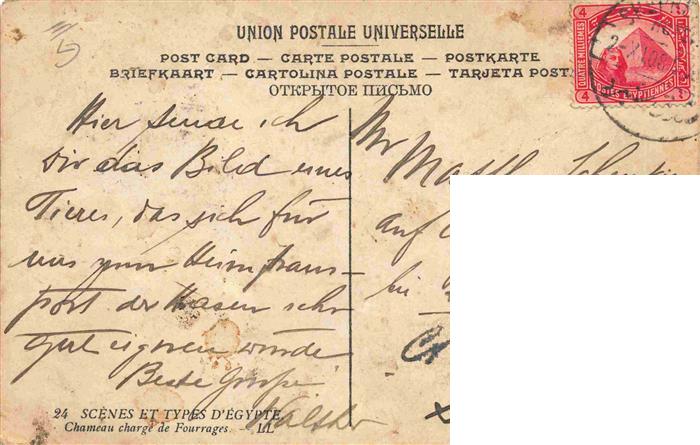 UNION POSTALE UNIVERSELLE
POST CARD — CARTE POSTALE — POSTKARTE
BRIEFKAART — CARTOLINA POSTALE — TARJETA POST
ОТКРЫТОЕ ПИСЬМО
4 4
QUATRE MILLIEMES
POSTES EGYPTIENNES
4
Hier sende ich
Dir das Bild eines
Tieres, das sich für
uns zum Heimtrans-
port der Hasen sehr
gut eignen würde
Beste Grüße
Mr
auf
bei
24 SCÈNES ET TYPES D'ÉGYPTE.
Chameau chargé de Fourrages. — LL